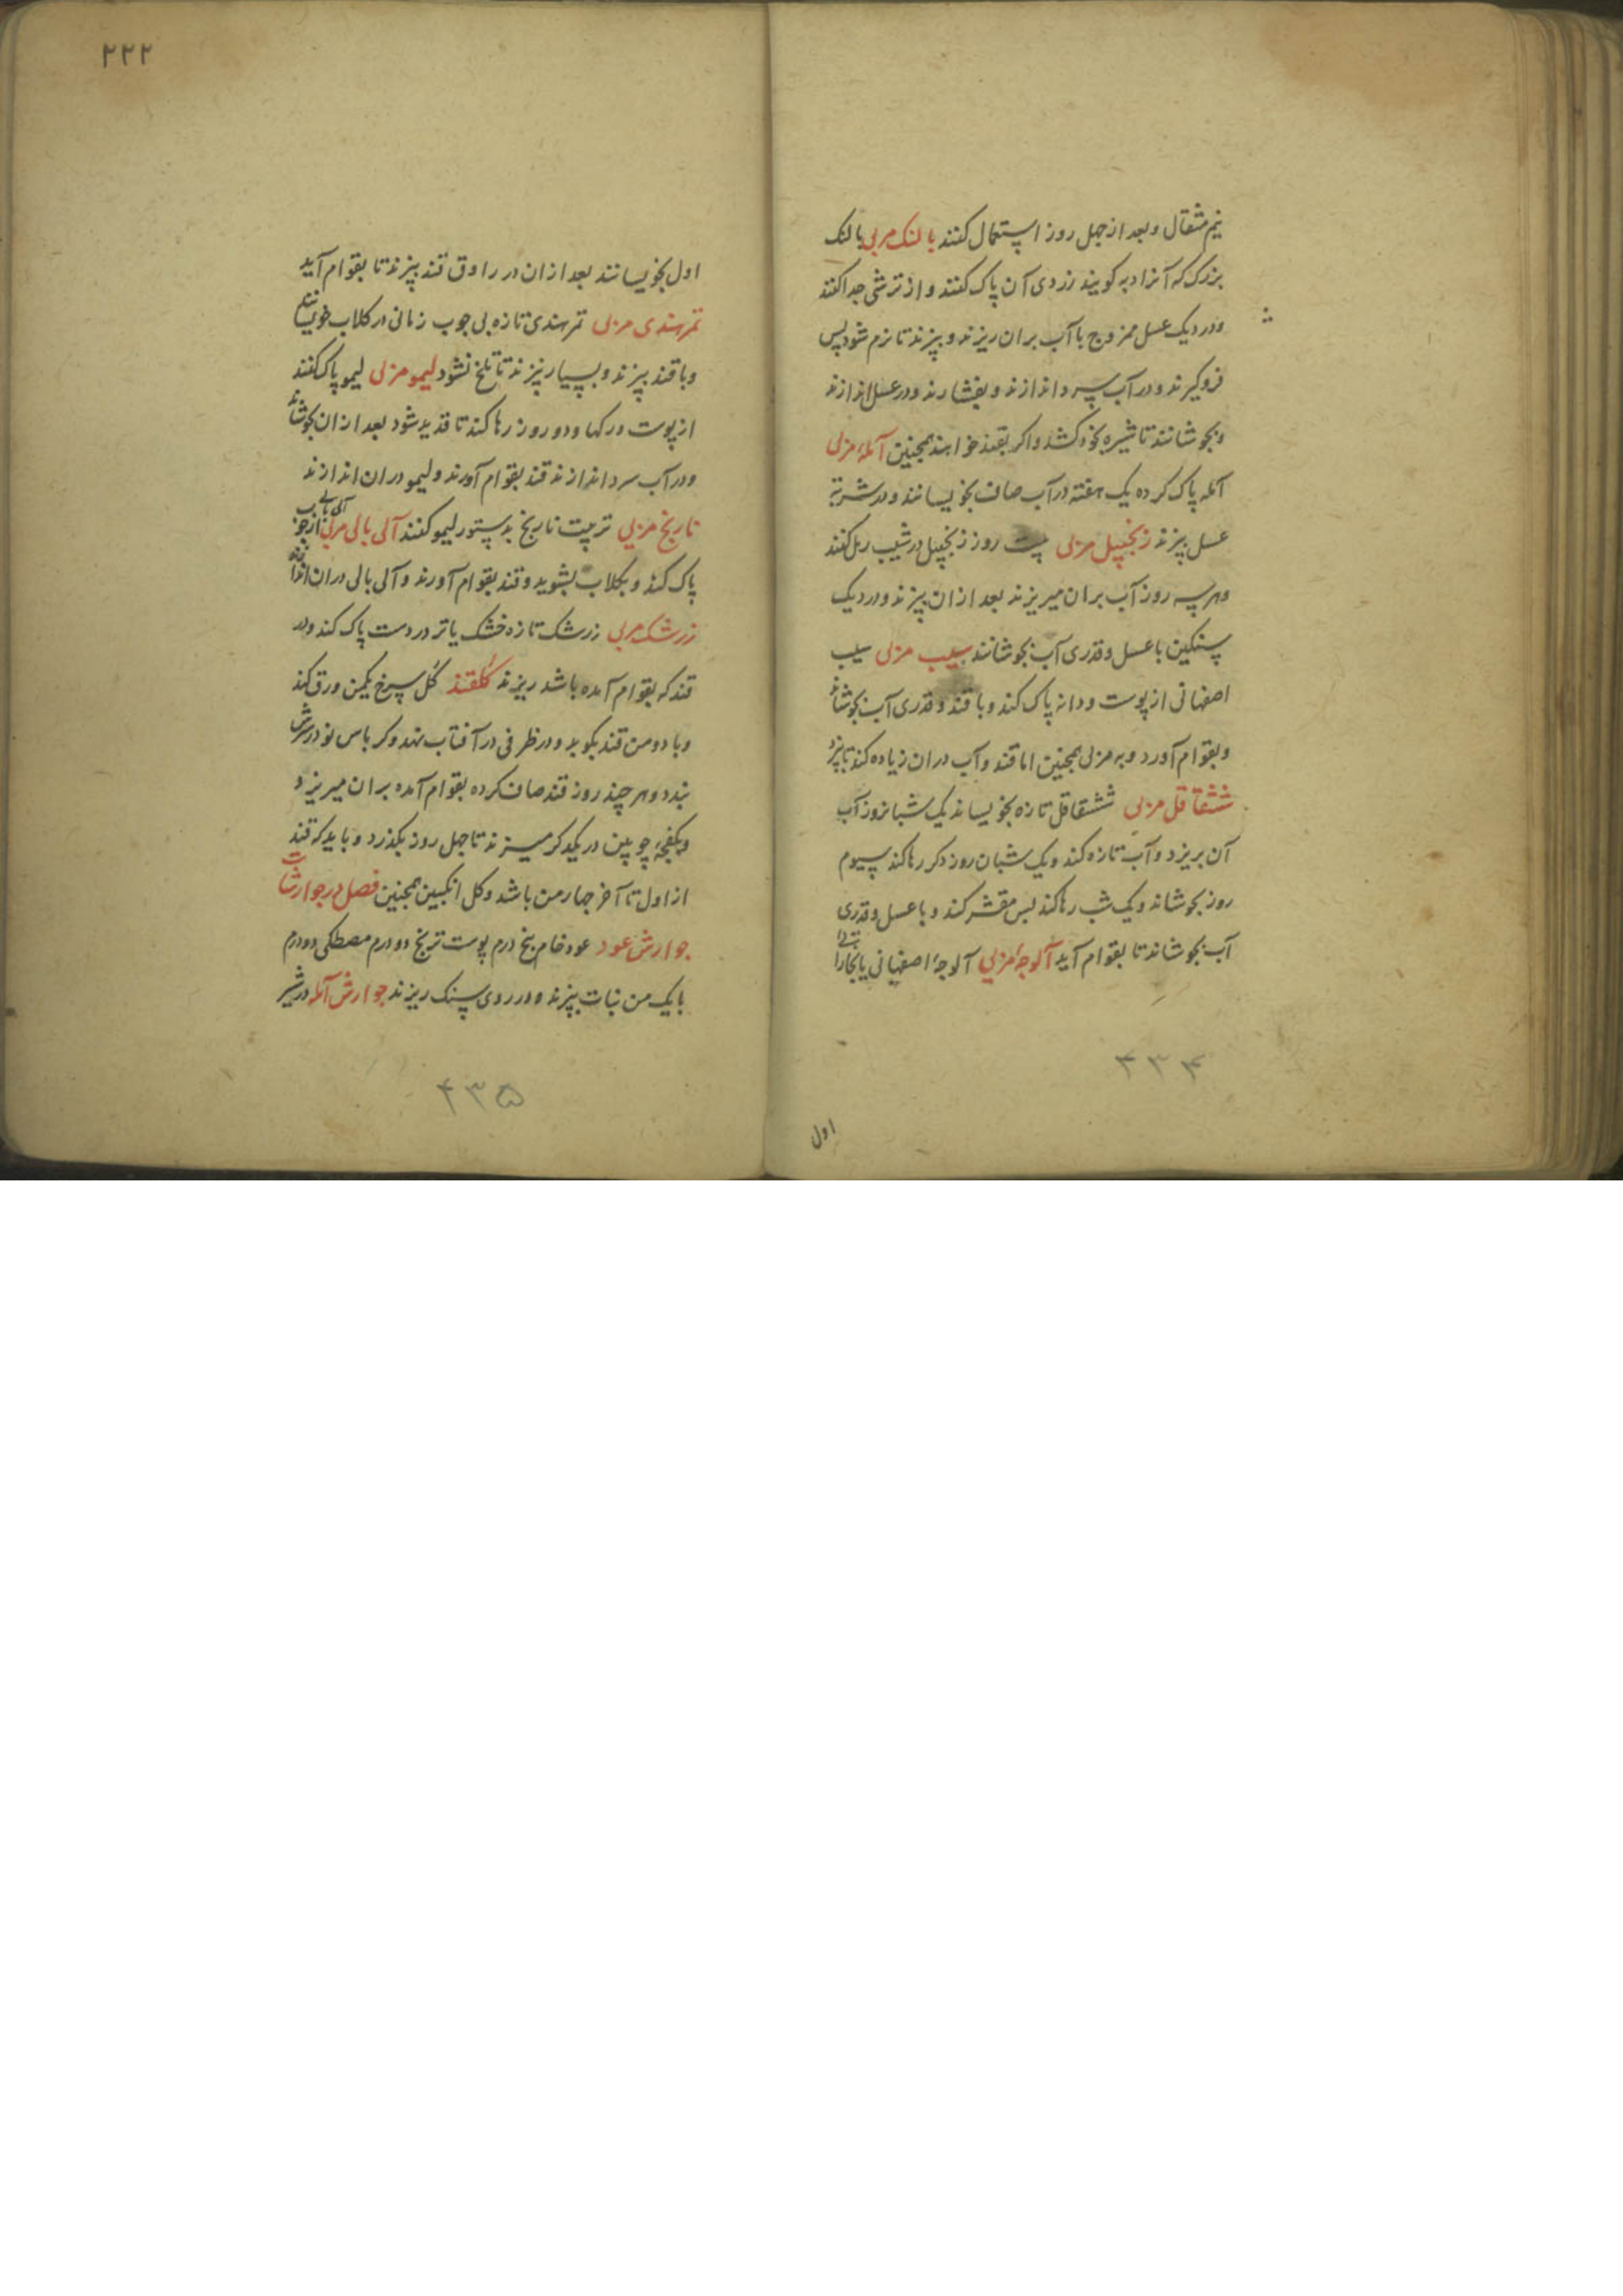 نیم مثقال و بعد از چهل روز استعمال کنند بالنک مربی بالنک
بزرک که آنرا دبه کویند زردی آن پاک کنند و از ترشی جدا کنند
و در دیک عسل ممزوج با آب بران ریزند و بپزند تا نرم شود پس
فرو کیرند و در آب سرد اندازند و بفشارند و در عسل اندازند
و بجوشانند تا شیره بخود کشد و اکر بقند خواهند همچنین آمله مربی
آمله پاک کرده یک هفته در آب صاف بخویسانند و در شربة
عسل بپزند زنجبیل مربی بیست روز زنجبیل در شیب رمل کنند
و هر سه روز آب بران میریزند بعد ازان بپزند و در دیک
سنکین با عسل و قدری آب بجوشانند سیب مربی سیب
اصفهانی از پوست و دانه پاک کند و با قند و قدری آب بجوشاند
و بقوام آورد و به مربی همچنین اما قند و آب دران زیاده کند تا بپزد
ششقاقل مربی ششقاقل تازه بخویساند یک شبانروز آب
آن بریزد و آب تازه کند و یک شبان روز دکر رها کند سیوم
روز بجوشاند و یک شب رها کند پس مقشر کند و با عسل و قدری
آب بجوشاند تا بقوام آید آلوچهٔ مربی آلوچهٔ اصفهانی یا بخارا
۴۳۴
اول
۲۲۲
اول بخویسانند بعد ازان در راوق قند بپزند تا بقوام آید
تمرهندی مربی تمرهندی تازه بی چوب زمانی در کلاب خویسانند
و با قند بپزند و بسیار نپزند تا تلخ نشود لیمو مربی لیمو پاک کنند
از پوست و رکها و دو روز رها کند تا قدید شود بعد ازان بجوشاند
و در آب سرد اندازند قند بقوام آورند و لیمو دران اندازند
نارنج مربی تربیت نارنج بدستور لیمو کنند آلی بالی مربی آلی بالی از چوب
پاک کند و بکلاب بشوید و قند بقوام آورند و آلی بالی دران اندازند
زرشک مربی زرشک تازه خشک یا تر در دست پاک کند و در
قند که بقوام آمده باشد ریزند کلقند کل سرخ یکمن ورق کند
و با دو من قند بکوبد و در ظرفی در آفتاب نهد و کرباس نو در سرش
بندد و هر چند روز قند صاف کرده بقوام آمده بران میریزد
و بکفچهٔ چوبین در یکدکر میزند تا چهل روز بکذرد و باید که قند
از اول تا آخر چهار من باشد و کل انکبین همچنین فصل در جوارشات
جوارش عود عود خام پنج درم پوست ترنج دو درم مصطکی دو درم
با یک من نبات بپزند و در روی سنک ریزند جوارش آمله در شیر
۴۳۵